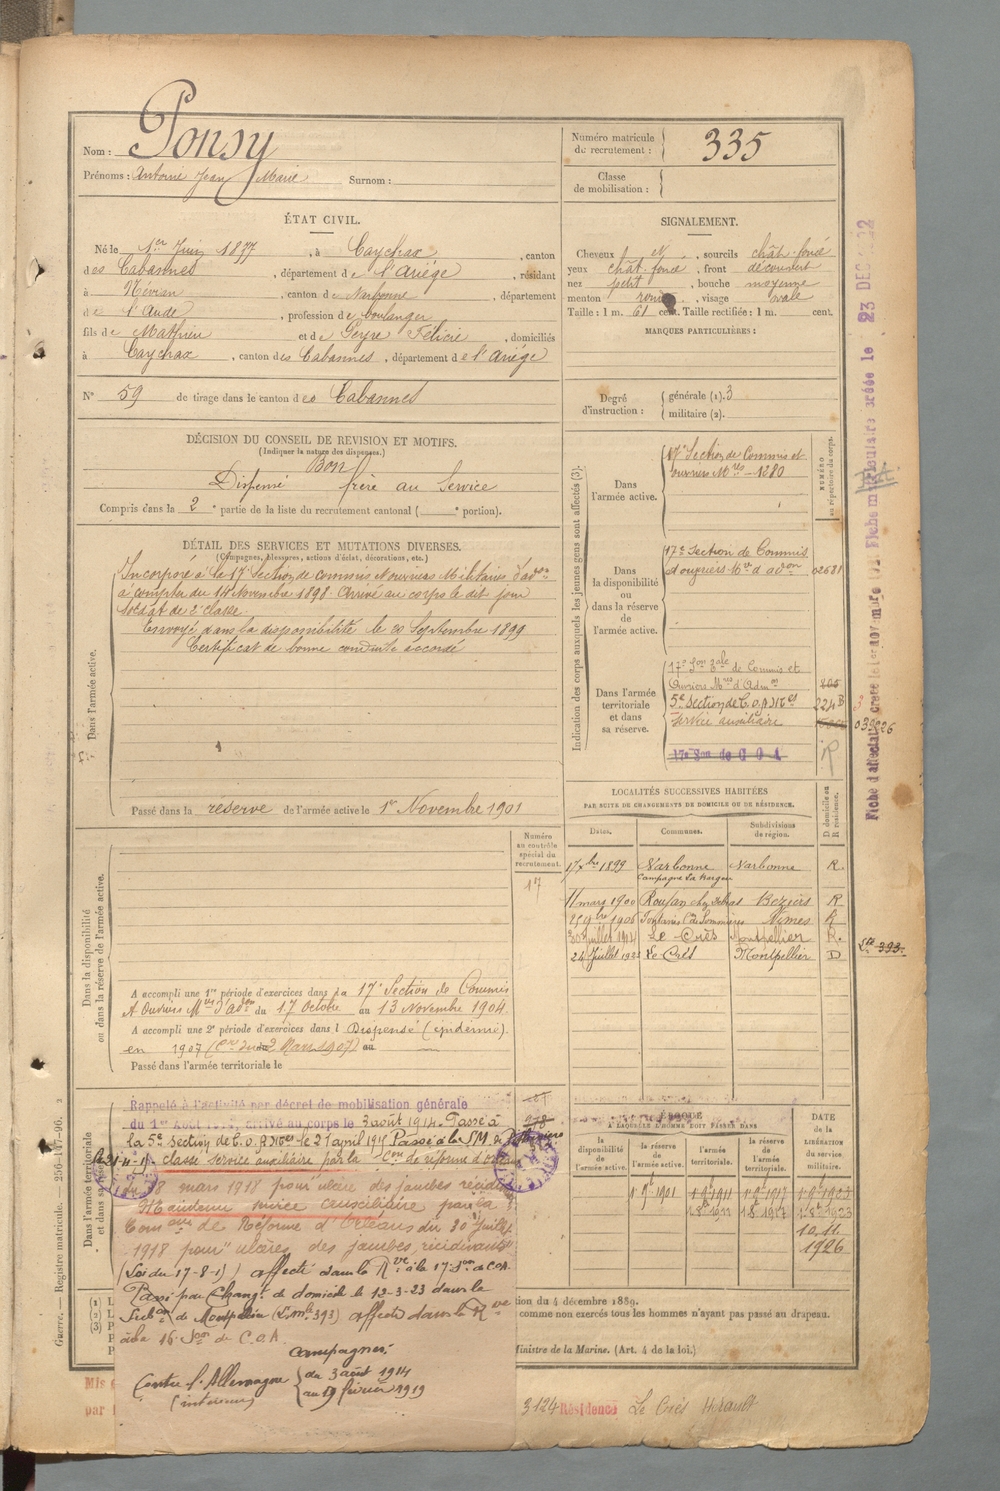 Nom : Ponsy
Prénoms : Antoine Jean Marie Surnom :
Numéro matricule de recrutement : 335
Classe de mobilisation :
ÉTAT CIVIL.
Né le 1er Juin 1877, à Caychax, canton
des Cabannes, département de l'Ariège, résidant
à Névian, canton de Narbonne, département
de l'Aude, profession de boulanger
fils de Mathieu et de Peyre Félicie, domiciliés
à Caychax, canton des Cabannes, département de l'Ariège
N° 59 de tirage dans le canton des Cabannes
SIGNALEMENT.
Cheveux N, sourcils chât. foncé
yeux chât. foncé, front découvert
nez petit, bouche moyenne
menton rond, visage ovale
Taille : 1 m. 61 cent. Taille rectifiée : 1 m. cent.
MARQUES PARTICULIÈRES :
Degré d'instruction : générale (1). 3
militaire (2).
DÉCISION DU CONSEIL DE REVISION ET MOTIFS.
(Indiquer la nature des dispenses.)
Bon
Dispensé frère au Service
Compris dans la 2e partie de la liste du recrutement cantonal ( e portion).
DÉTAIL DES SERVICES ET MUTATIONS DIVERSES.
(Campagnes, blessures, actions d'éclat, décorations, etc.)
Dans l'armée active.
Incorporé à la 17e Section de commis et ouvriers Militaires d'adon
à compter du 14 Novembre 1898 Arrivé au corps le dit jour
soldat de 2e classe.
Envoyé dans la disponibilité le 20 Septembre 1899
Certificat de bonne conduite accordé
Passé dans la réserve de l'armée active le 1er Novembre 1901
Indication des corps auxquels les jeunes gens sont affectés (3).
NUMÉRO au répertoire du corps.
Dans l'armée active.
17e Section de Commis et
ouvriers Mres - 1280
Dans la disponibilité ou dans la réserve de l'armée active.
17e Section de Commis
et ouvriers Mres d'adon 02681
Dans l'armée territoriale et dans sa réserve.
17e Son Tale de Commis et
Ouvriers Mres d'Admon 805
5e Section de C.O.A Mres 224 B
Service auxiliaire
17e Son de C O A
R
039226
LOCALITÉS SUCCESSIVES HABITÉES
PAR SUITE DE CHANGEMENTS DE DOMICILE OU DE RÉSIDENCE.
Dates. Communes. Subdivisions de région. D domicile ou R résidence.
17 xbre 1899 Narbonne Narbonne R.
11 mars 1900 Béziers R
25 9bre 1906 Nîmes R
30 juillet 1914 Le Crès Montpellier R.
24 Juillet 192 Le Crès Montpellier D
393
Numéro au contrôle spécial du recrutement.
17
Dans la disponibilité ou dans la réserve de l'armée active.
A accompli une 1re période d'exercices dans la 17e Section de Commis
et Ouvriers Mres d'adon du 17 Octobre au 13 Novembre 1904.
A accompli une 2e période d'exercices dans l Dispensé (épidémie).
en 1907 (Cre du 2 Mars 1907) au
Passé dans l'armée territoriale le
Dans l'armée territoriale et dans sa
Rappelé à l'activité par décret de mobilisation générale
du 1er Août 1914, arrivé au corps le 3 août 1914. Passé à
la 5e Section de C.O.A Mres le 21 avril 1915 Passé à la
classé service auxiliaire par la Con de réforme d'Orléans
du 8 mars 1918 pour ulcère des jambes
Maintenu service auxiliaire par la
Comon de Réforme d'Orléans du 20 Juillet
1918 pour "ulcères des jambes, récidivants"
(Loi du 17-8-1 ) affecté dans la Rve à la 17e Son de C.O.A.
Passé par Changt de domicile le 12-3-23 dans la
Subon de Montpellier (L. mle 393) affecté dans la Rve
à la 16e Son de C.O.A.
Campagnes
Contre l'Allemagne du 3 août 1914
(intérieur) au 19 février 1919
978
ÉPOQUE
A LAQUELLE L'HOMME DOIT PASSER DANS
la disponibilité de l'armée active. la réserve de l'armée active. l'armée territoriale. la réserve de l'armée territoriale. DATE de la LIBÉRATION du service militaire.
1. 9e 1901 1. 9e 1911 1. 9e 1917 1. 9e 1923
1. 8e 1911 1. 8e 1917 1. 8e 1923
10. 11.
1926
tion du 4 décembre 1889.
comme non exercés tous les hommes n'ayant pas passé au drapeau.
Ministre de la Marine. (Art. 4 de la loi.)
Mis
par
3124 Résidence Le Crès Hérault
Guerre. — Registre matricule. — 256-1047-96. 2
23 DEC